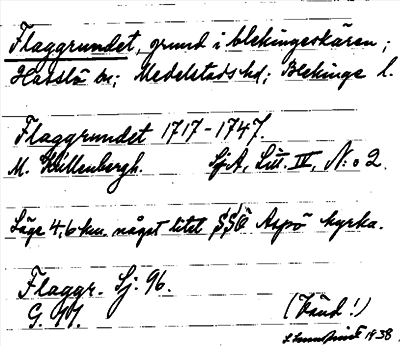 Flaggrundet, grund i blekingeskären;
Hasslö sn; Medelstads hd; Blekinge l.
Flaggrundet 1717-1747.
M. Källenbergh. Sj.A, Litt. IV, N:o 2.
Läge 4,6 km. något litet SSÖ Aspö kyrka.
Flaggr. Sj. 96.
G. (Känd!)
1938